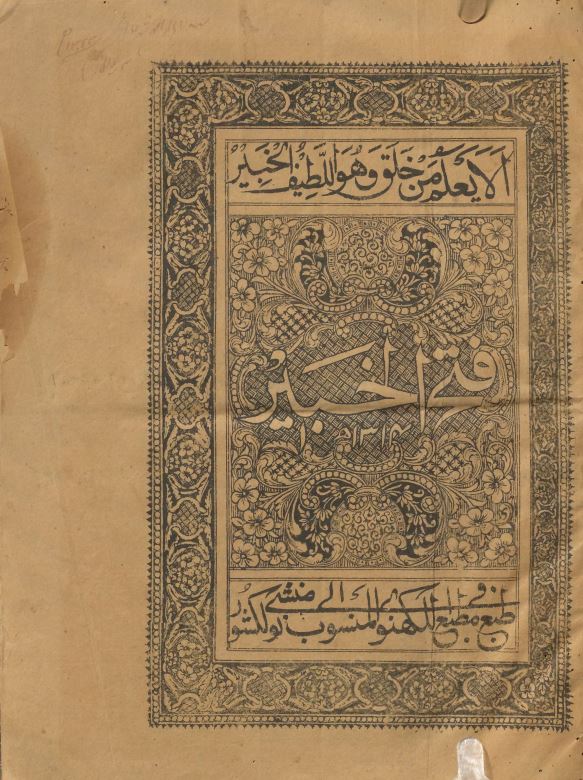 اَلَا يَعْلَمُ مَنْ خَلَقَ وَهُوَ اللَّطِيفُ الْخَبِيرُ
فتح الخبير
طبع فی مطبع لکھنو المنسوب الی منشی نولکشور